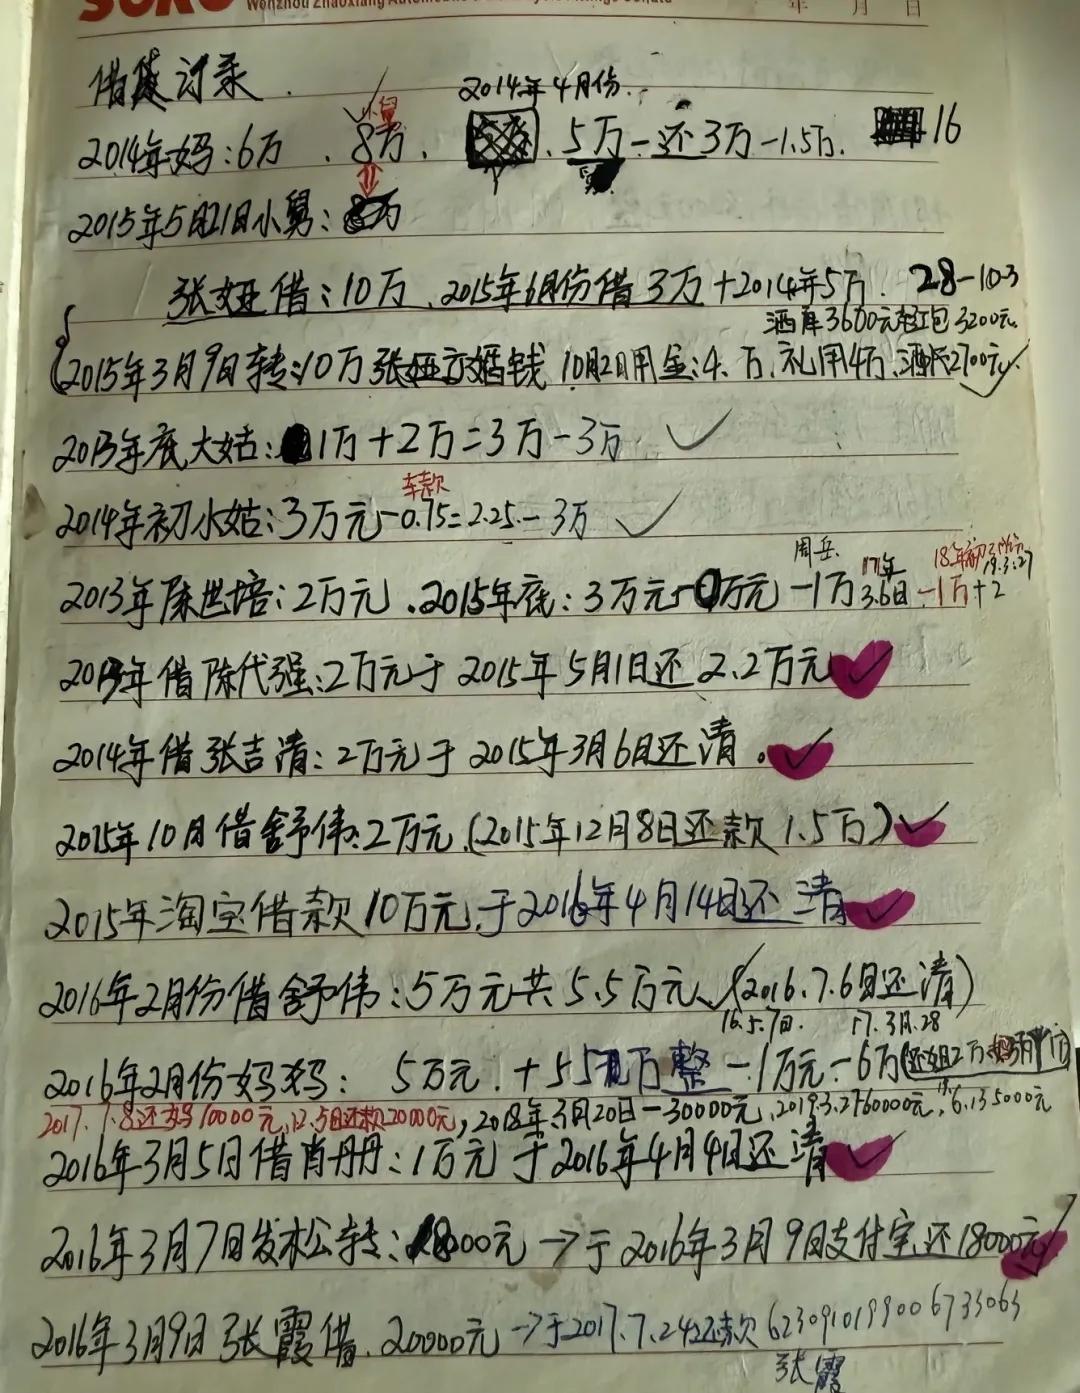 年 月 日
借贷记录.
2014年4月份.
2014年妈:6万 . 8万. 5万-还3万-1.5万. 16
小舅
2015年5月21日小舅:
张娅借:10万、2015年6月份借3万+2014年5万. 28-10-3
酒席3600元 红包3200元.
2015年3月9日转:10万张娅 婚钱 10月2日用金:4.万、礼用4万、酒席2700元
2013年底大姑:1万+2万=3万-3万
车款
2014年初小姑:3万元-0.75=2.25-3万
周岳. 17年 18年初 19.3.27
2013年陈世培:2万元.2015年底:3万元- 万元-1万 3.6日-1万+2
2013年借陈代强:2万元于2015年5月1日还2.2万元
2014年借张吉清:2万元于2015年3月6日还清.
2015年10月借舒伟:2万元.(2015年12月8日还款1.5万)
2015年淘宝借款10万元,于2016年4月14日还清
2016年2月份借舒伟:5万元共5.5万元、(2016.7.6日还清)
16.5.7日. 17.3月.28
2016年2月份妈妈: 5万元.+5 万整-1万元-6万(还姐2万
2017.7.8还妈10000元,12.5日还款20000元,2018年3月20日-30000元,2019.3.27 60000元, 6.13 5000元
2016年3月5日借肖丹丹:1万元于2016年4月4日还清
2016年3月7日发松转: 8000元→于2016年3月9日支付宝还18000元
2016年3月9日张霞借.20000元→于2017.7.24还款6230910199006733063
张霞